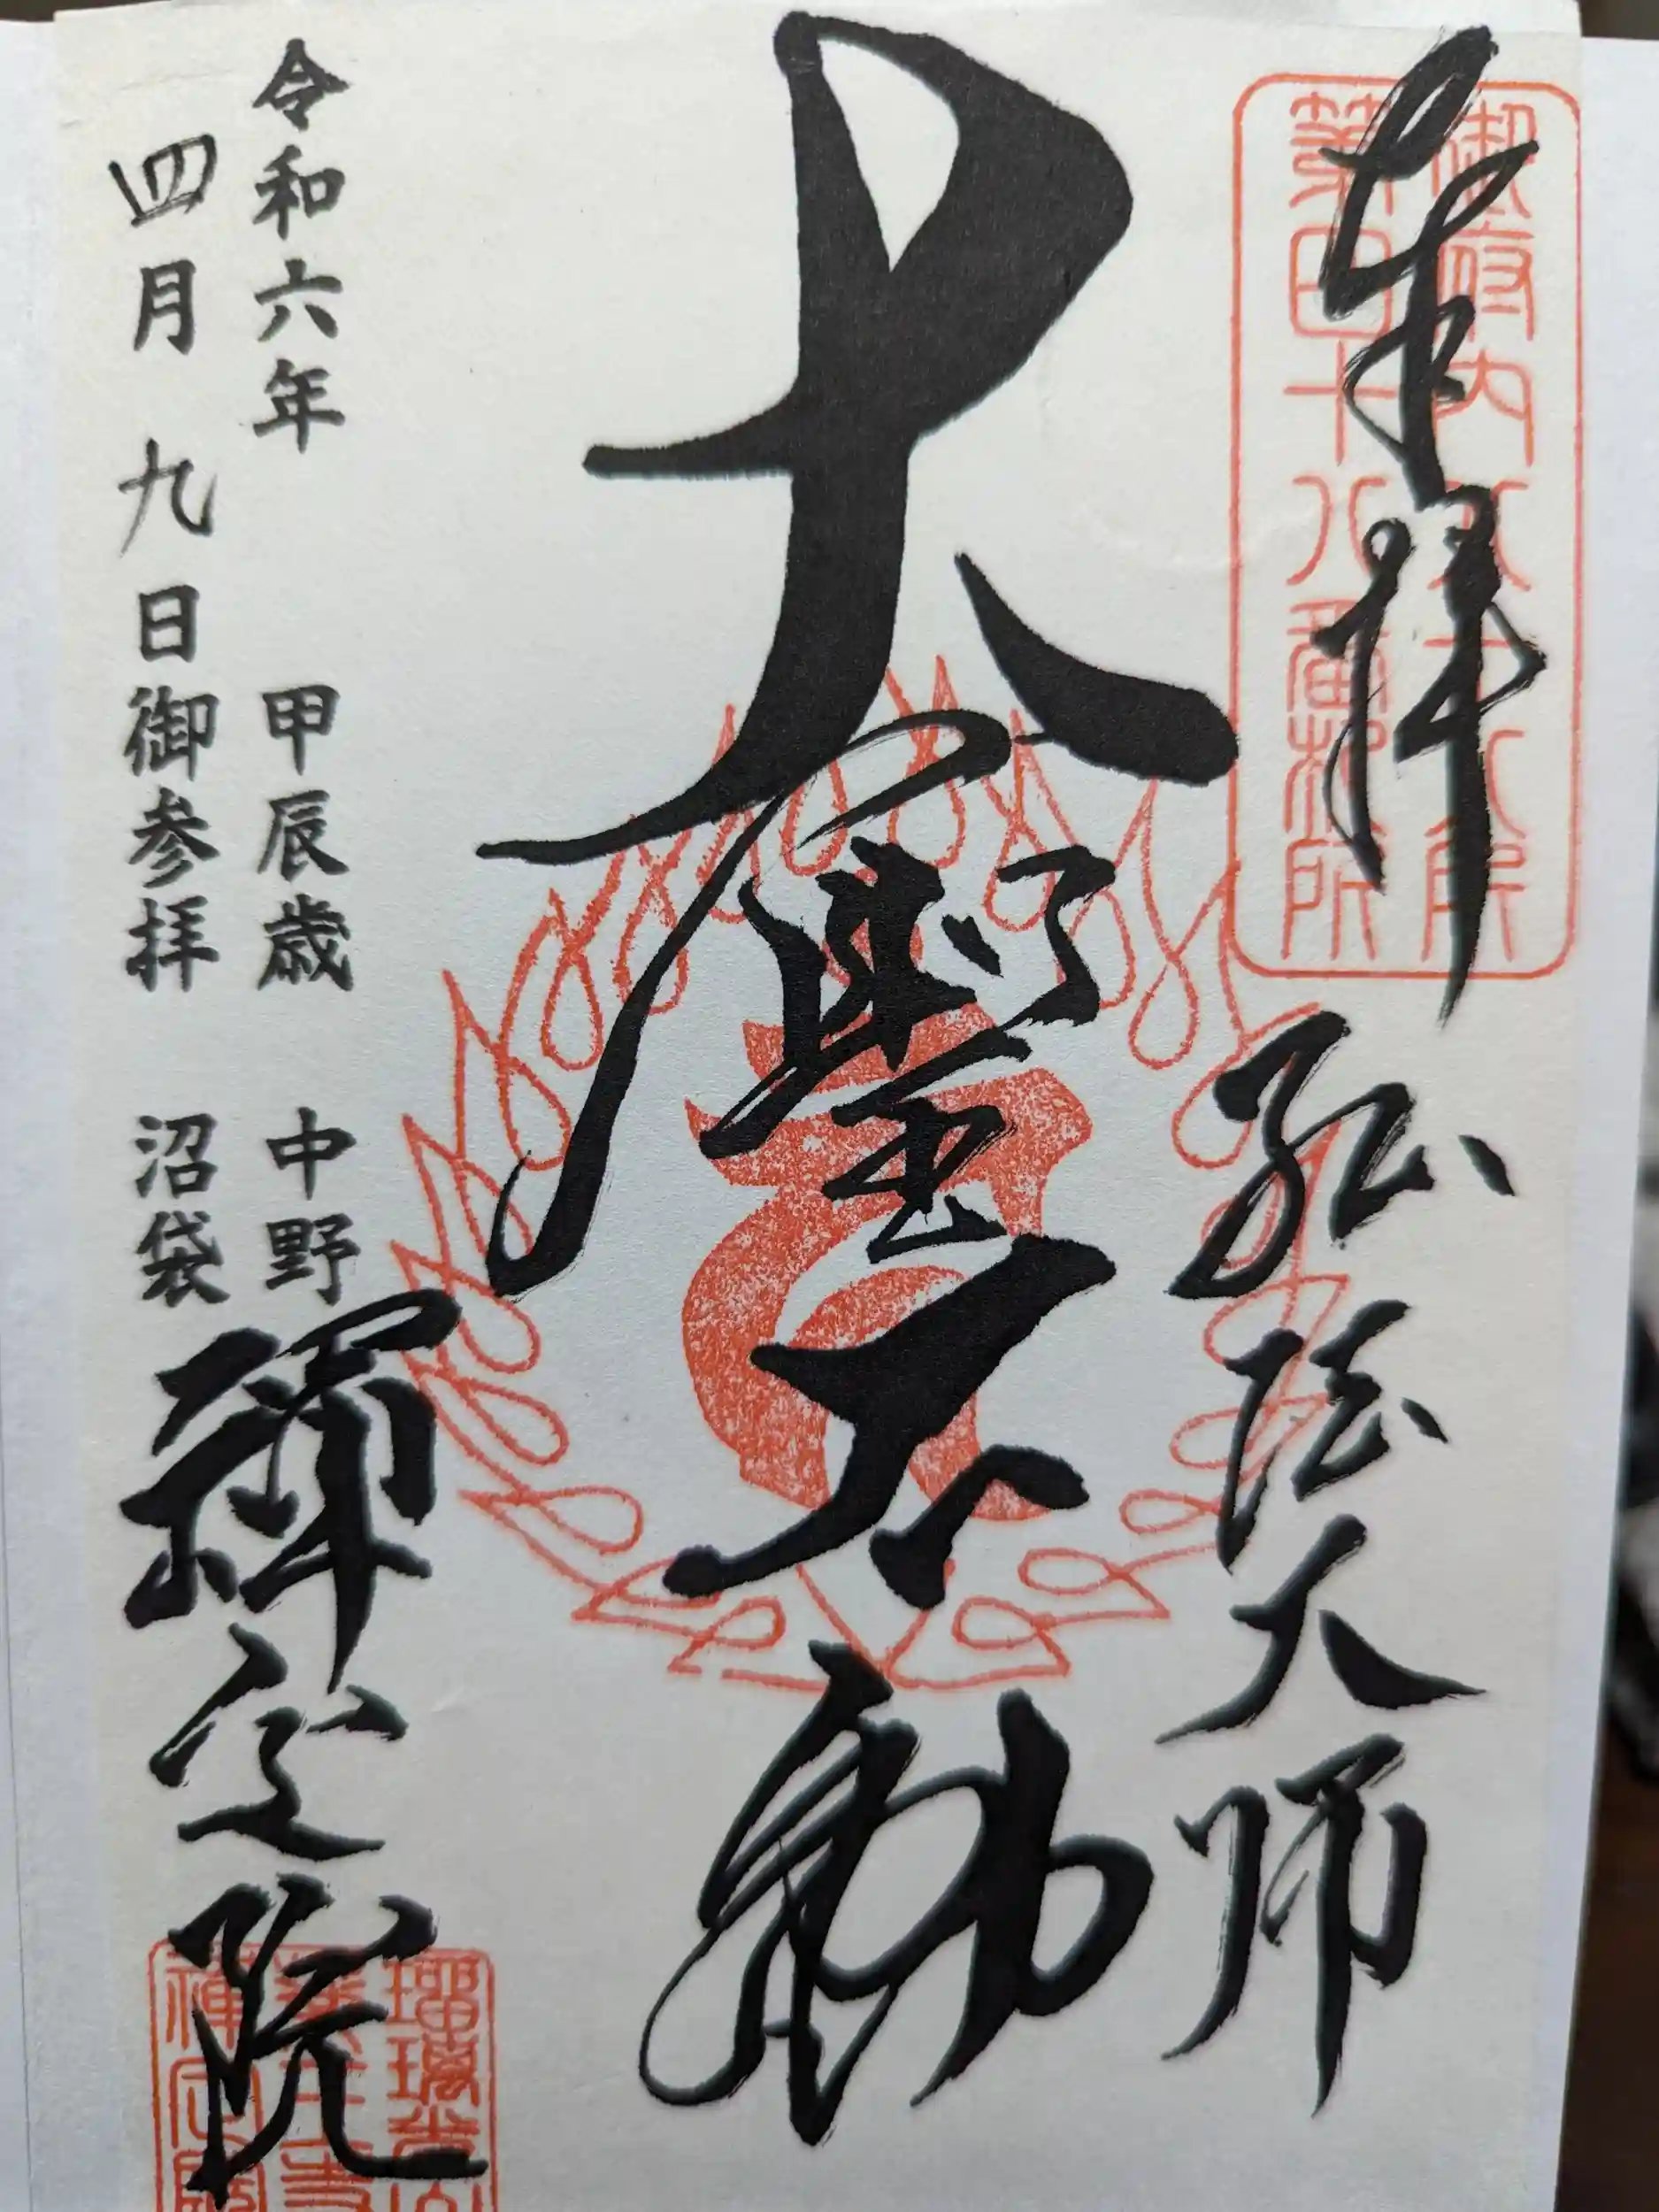 奉拝
弘法大師
御府内八十八ヶ所
第四十八番札所
大聖不動
令和六年 甲辰歳 中野
四月九日御参拝 沼袋
禅定院
瑠璃光山
薬王寺
禅定院